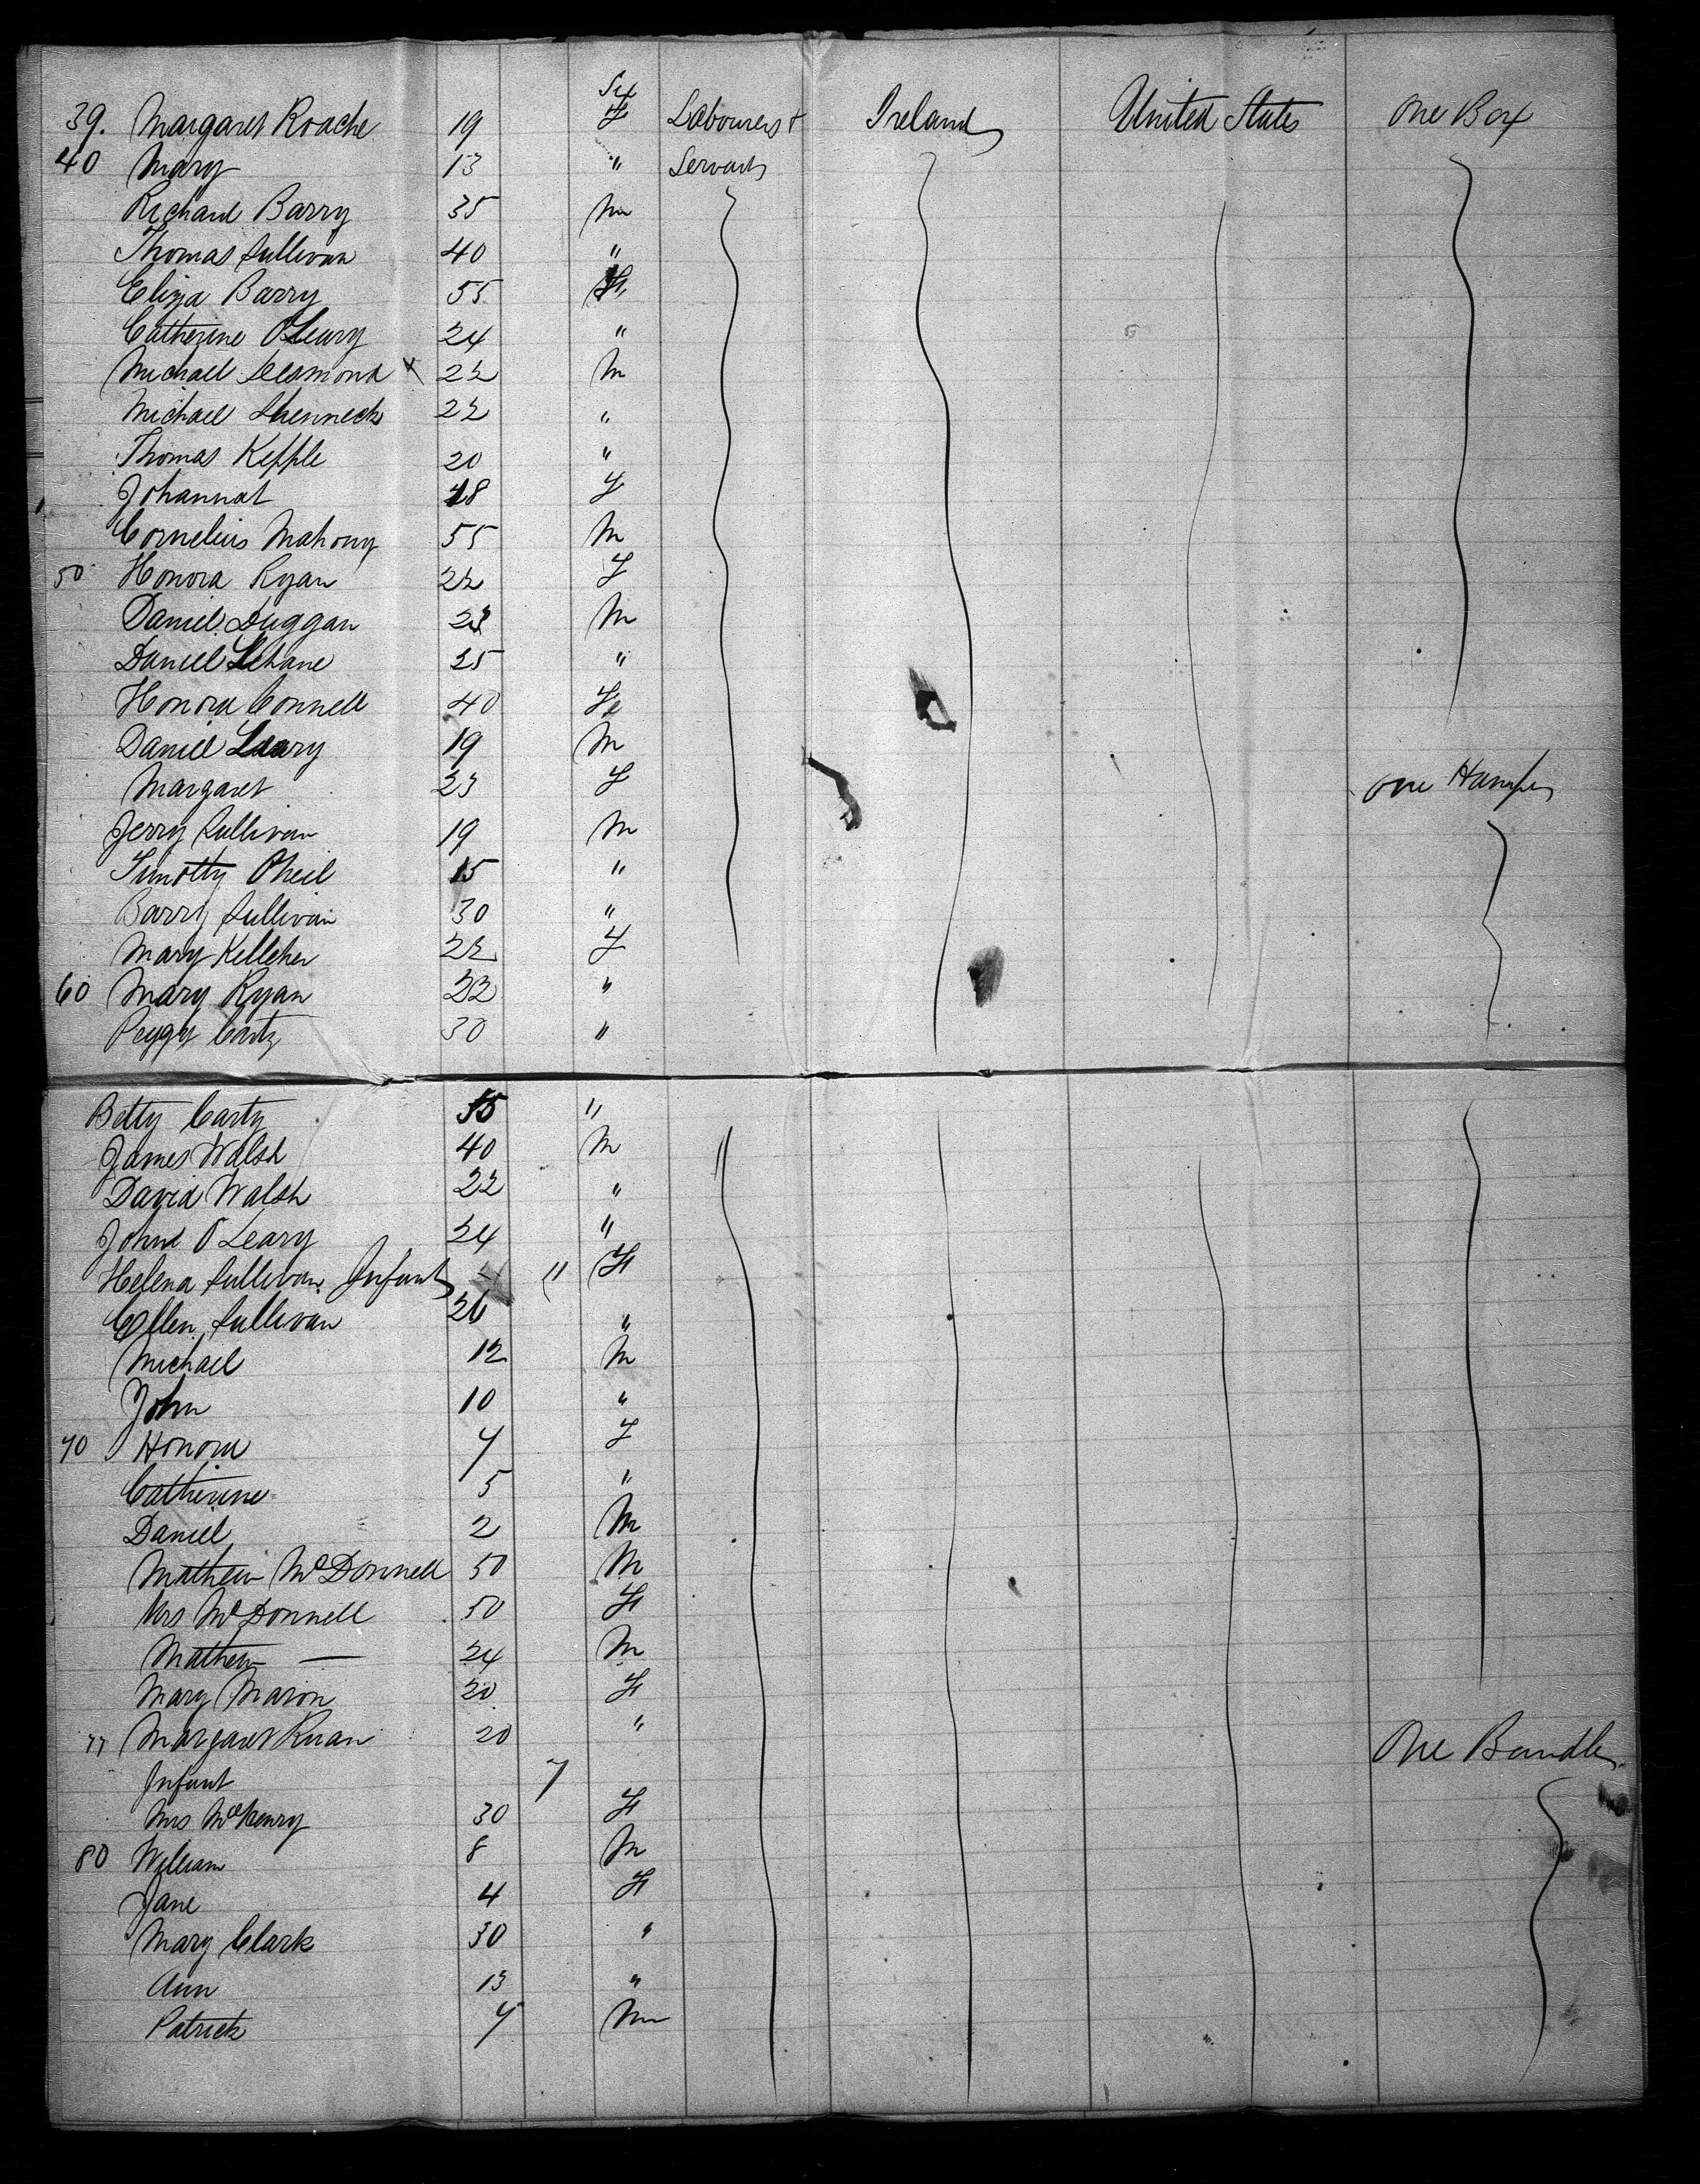 Sex
39. Margaret Roache 19 F Labourers + Ireland United States One Box
40 Mary 13 " Servants
Richard Barry 35 M
Thomas Sullivan 40 "
Eliza Barry 55 F
Catherine OLeary 24 "
Michael Desmond X 22 M
Michael 22 "
Thomas Kepple 20 "
Johannah 18 F
Cornelius Mahony 55 M
50 Honora Ryan 22 F
Daniel Duggan 23 M
Daniel Lehane 25 "
Honora Connell 40 Fe
Daniel Leary 19 M
Margaret 23 F One Hamper
Jerry Sullivan 19 M
Timothy ONeil 15 "
Barry Sullivan 30 "
Mary Kelleher 22 F
60 Mary Ryan 22 "
Peggy Carty 30 "
Betty Carty 55 "
James Walsh 40 M
David Walsh 22 "
John O Leary 24 "
Helena Sullivan Infant - 11 F
Ellen Sullivan 26 "
Michael 12 M
John 10 "
70 Honora 7 F
Catherine 5 "
Daniel 2 M
Mathew McDonnell 50 M
Mrs McDonnell 50 F
Mathew — 24 M
Mary Mason 20 F
77 Margaret Ruan 20 " One Bundle
Infant 7
Mrs McHenry 30 F
80 William 8 M
Jane 4 F
Mary Clark 30 "
Ann 13 "
Patrick 7 M